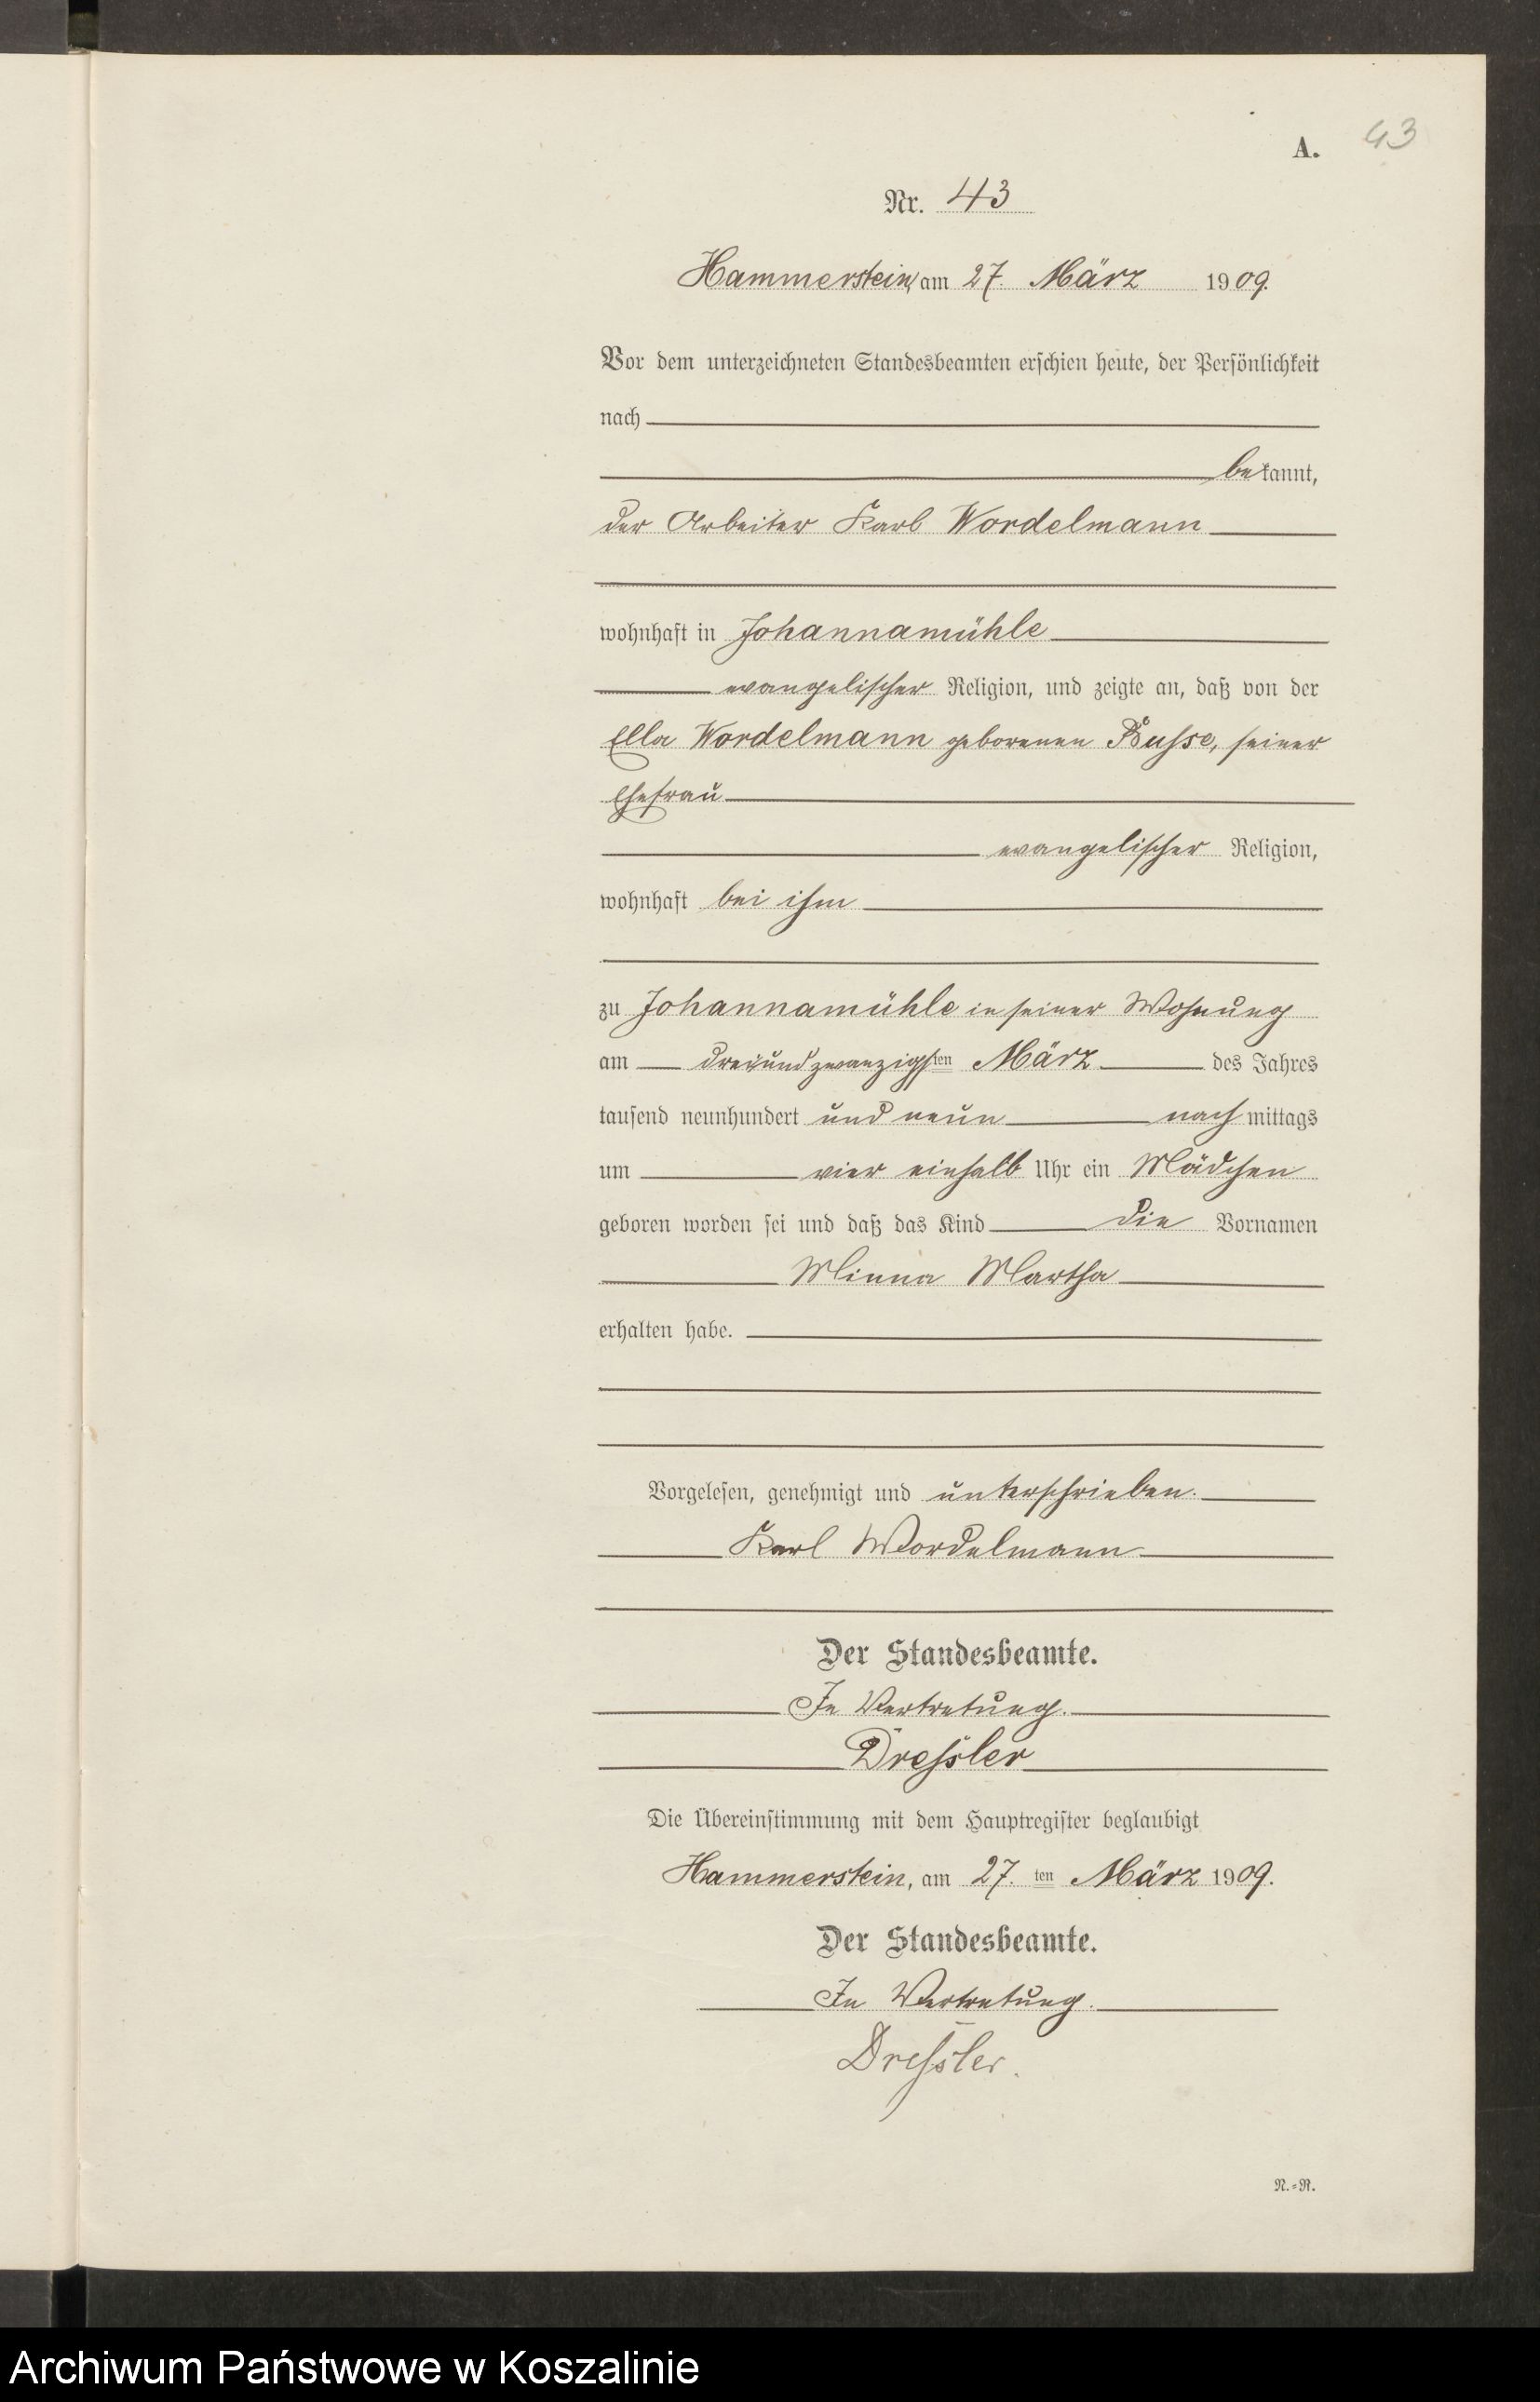 A. 43
Nr. 43
Hammerstein, am 27. März 1909.
Vor dem unterzeichneten Standesbeamten erschien heute, der Persönlichkeit
nach
bekannt,
der Arbeiter Karl Wordelmann
wohnhaft in Johannamühle
evangelischer Religion, und zeigte an, daß von der
Ella Wordelmann geborenen Busse, seiner
Ehefrau
evangelischer Religion,
wohnhaft bei ihm
zu Johannamühle in seiner Wohnung
am dreiundzwanzigsten März des Jahres
tausend neunhundert und neun nachmittags
um vier einhalb Uhr ein Mädchen
geboren worden sei und daß das Kind die Vornamen
Minna Martha
erhalten habe.
Vorgelesen, genehmigt und unterschrieben.
Karl Wordelmann
Der Standesbeamte.
In Vertretung.
Dressler
Die Übereinstimmung mit dem Hauptregister beglaubigt
Hammerstein, am 27. ten März 1909.
Der Standesbeamte.
In Vertretung.
Dressler.
N.=R.
Archiwum Państwowe w Koszalinie